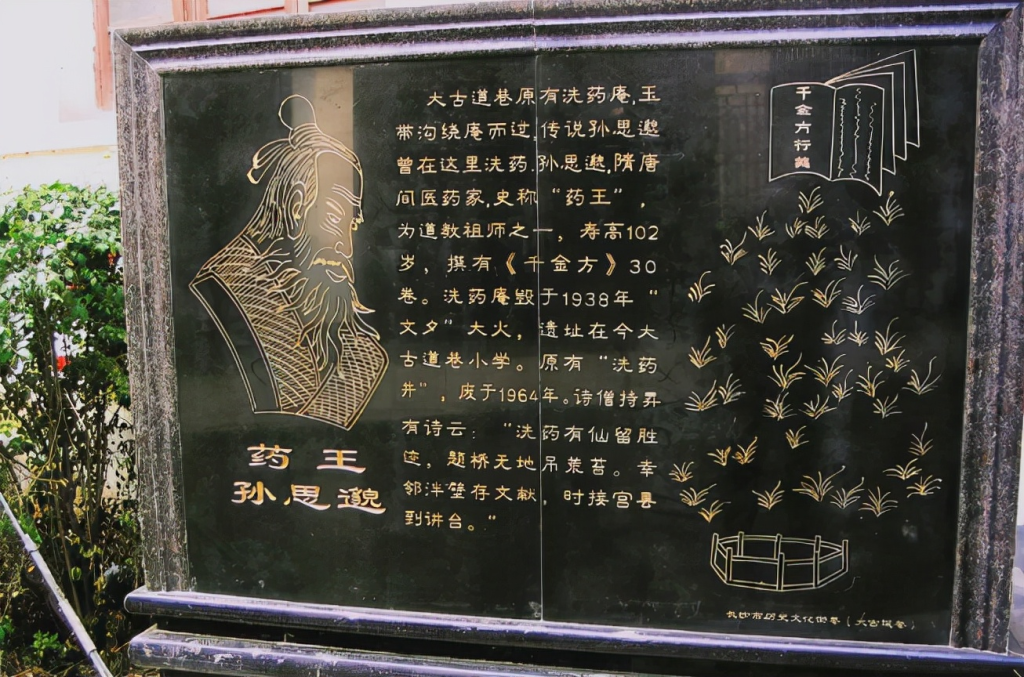 药王
孙思邈
大古道巷原有洗药庵,玉
带沟绕庵而过,传说孙思邈
曾在这里洗药.孙思邈,隋唐
间医药家,史称“药王”,
为道教祖师之一,寿高102
岁,撰有《千金方》30
卷。洗药庵毁于1938年“
文夕”大火,遗址在今大
古道巷小学。原有“洗药
井”,废于1964年。诗僧持昇
有诗云:“洗药有仙留胜
迹,题桥无地吊荒苔。幸
邻泮壁存文献,时接宫县
到讲台。”
千金方行
长沙市历史文化街巷(大古道巷)